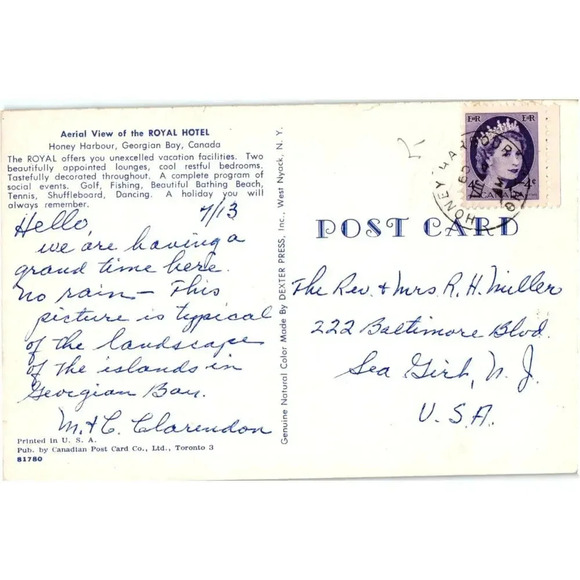 Aerial View of the ROYAL HOTEL
Honey Harbour, Georgian Bay, Canada
The ROYAL offers you unexcelled vacation facilities. Two
beautifully appointed lounges, cool restful bedrooms.
Tastefully decorated throughout. A complete program of
social events. Golf, Fishing, Beautiful Bathing Beach,
Tennis, Shuffleboard, Dancing. A holiday you will
always remember.
Hello 7/13
we are having a
grand time here.
No rain — This
picture is typical
of the landscape
of the islands in
Georgian Bay.
M. & C. Clarendon
Printed in U. S. A.
Pub. by Canadian Post Card Co., Ltd., Toronto 3
81780
Genuine Natural Color Made By DEXTER PRESS, Inc., West Nyack, N. Y.
E R E R
4c 4c
HONEY HARBOUR
63
POST CARD
The Rev. & Mrs R. H. Miller
222 Baltimore Blvd.
Sea Girt, N. J.
U. S. A.